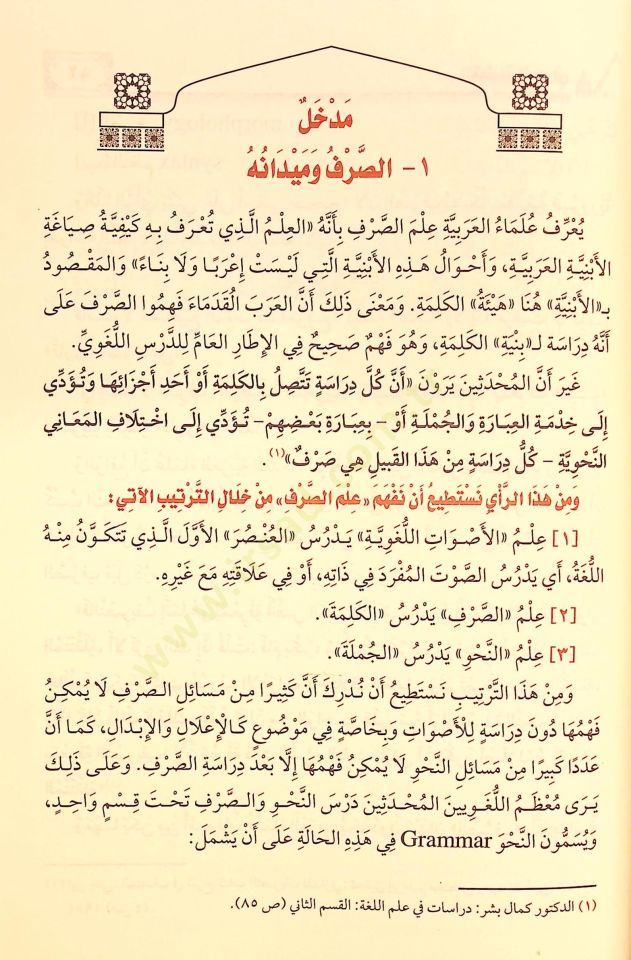 مَدْخَلٌ
١- الصَّرْفُ وَمَيْدَانُهُ
يُعْرِّفُ عُلَمَاءُ العَرَبِيَّةِ عِلْمَ الصَّرْفِ بِأَنَّهُ «العِلْمُ الَّذِي تُعْرَفُ بِهِ كَيْفِيَّةُ صِيَاغَةِ
الأَبْنِيَّةِ العَرَبِيَّةِ، وَأَحْوَالُ هَذِهِ الأَبْنِيَّةِ الَّتِي لَيْسَتْ إِعْرَابًا وَلَا بِنَاءً» وَالمَقْصُودُ
بِـ«الأَبْنِيَّةِ» هُنَا «هَيْئَةُ» الكَلِمَةِ. وَمَعْنَى ذَلِكَ أَنَّ العَرَبَ القُدَمَاءَ فَهِمُوا الصَّرْفَ عَلَى
أَنَّهُ دِرَاسَةٌ لـ«بِنْيَةِ» الكَلِمَةِ، وَهُوَ فَهْمٌ صَحِيحٌ فِي الإِطَارِ العَامِّ لِلدَّرْسِ اللُّغَوِيِّ.
غَيْرَ أَنَّ المُحْدَثِينَ يَرَوْنَ «أَنَّ كُلَّ دِرَاسَةٍ تَتَّصِلُ بِالكَلِمَةِ أَوْ أَحَدِ أَجْزَائِهَا وَتُؤَدِّي
إِلَى خِدْمَةِ العِبَارَةِ وَالجُمْلَةِ أَوْ - بِعِبَارَةِ بَعْضِهِمْ- تُؤَدِّي إِلَى اخْتِلَافِ المَعَانِي
النَّحْوِيَّةِ - كُلُّ دِرَاسَةٍ مِنْ هَذَا القَبِيلِ هِيَ صَرْفٌ»(١).
وَمِنْ هَذَا الرَّأْيِ نَسْتَطِيعُ أَنْ نَفْهَمَ «عِلْمَ الصَّرْفِ» مِنْ خِلَالِ التَّرْتِيبِ الآتِي:
[١] عِلْمُ «الأَصْوَاتِ اللُّغَوِيَّةِ» يَدْرُسُ «العُنْصُرَ» الأَوَّلَ الَّذِي تَتَكَوَّنُ مِنْهُ
اللُّغَةُ، أَيْ يَدْرُسُ الصَّوْتَ المُفْرَدَ فِي ذَاتِهِ، أَوْ فِي عَلَاقَتِهِ مَعَ غَيْرِهِ.
[٢] عِلْمُ «الصَّرْفِ» يَدْرُسُ «الكَلِمَةَ».
[٣] عِلْمُ «النَّحْوِ» يَدْرُسُ «الجُمْلَةَ».
وَمِنْ هَذَا التَّرْتِيبِ نَسْتَطِيعُ أَنْ نُدْرِكَ أَنَّ كَثِيرًا مِنْ مَسَائِلِ الصَّرْفِ لَا يُمْكِنُ
فَهْمُهَا دُونَ دِرَاسَةٍ لِلْأَصْوَاتِ وَبِخَاصَّةٍ فِي مَوْضُوعٍ كَالْإِعْلَالِ وَالإِبْدَالِ، كَمَا أَنَّ
عَدَدًا كَبِيرًا مِنْ مَسَائِلِ النَّحْوِ لَا يُمْكِنُ فَهْمُهَا إِلَّا بَعْدَ دِرَاسَةِ الصَّرْفِ. وَعَلَى ذَلِكَ
يَرَى مُعْظَمُ اللُّغَوِيينَ المُحْدَثِينَ دَرْسَ النَّحْوِ وَالصَّرْفِ تَحْتَ قِسْمٍ وَاحِدٍ،
وَيُسَمُّونَ النَّحْوَ Grammar فِي هَذِهِ الحَالَةِ عَلَى أَنْ يَشْمَلَ:
(١) الدكتور كمال بشر: دراسات في علم اللغة: القسم الثاني (ص ٨٥).